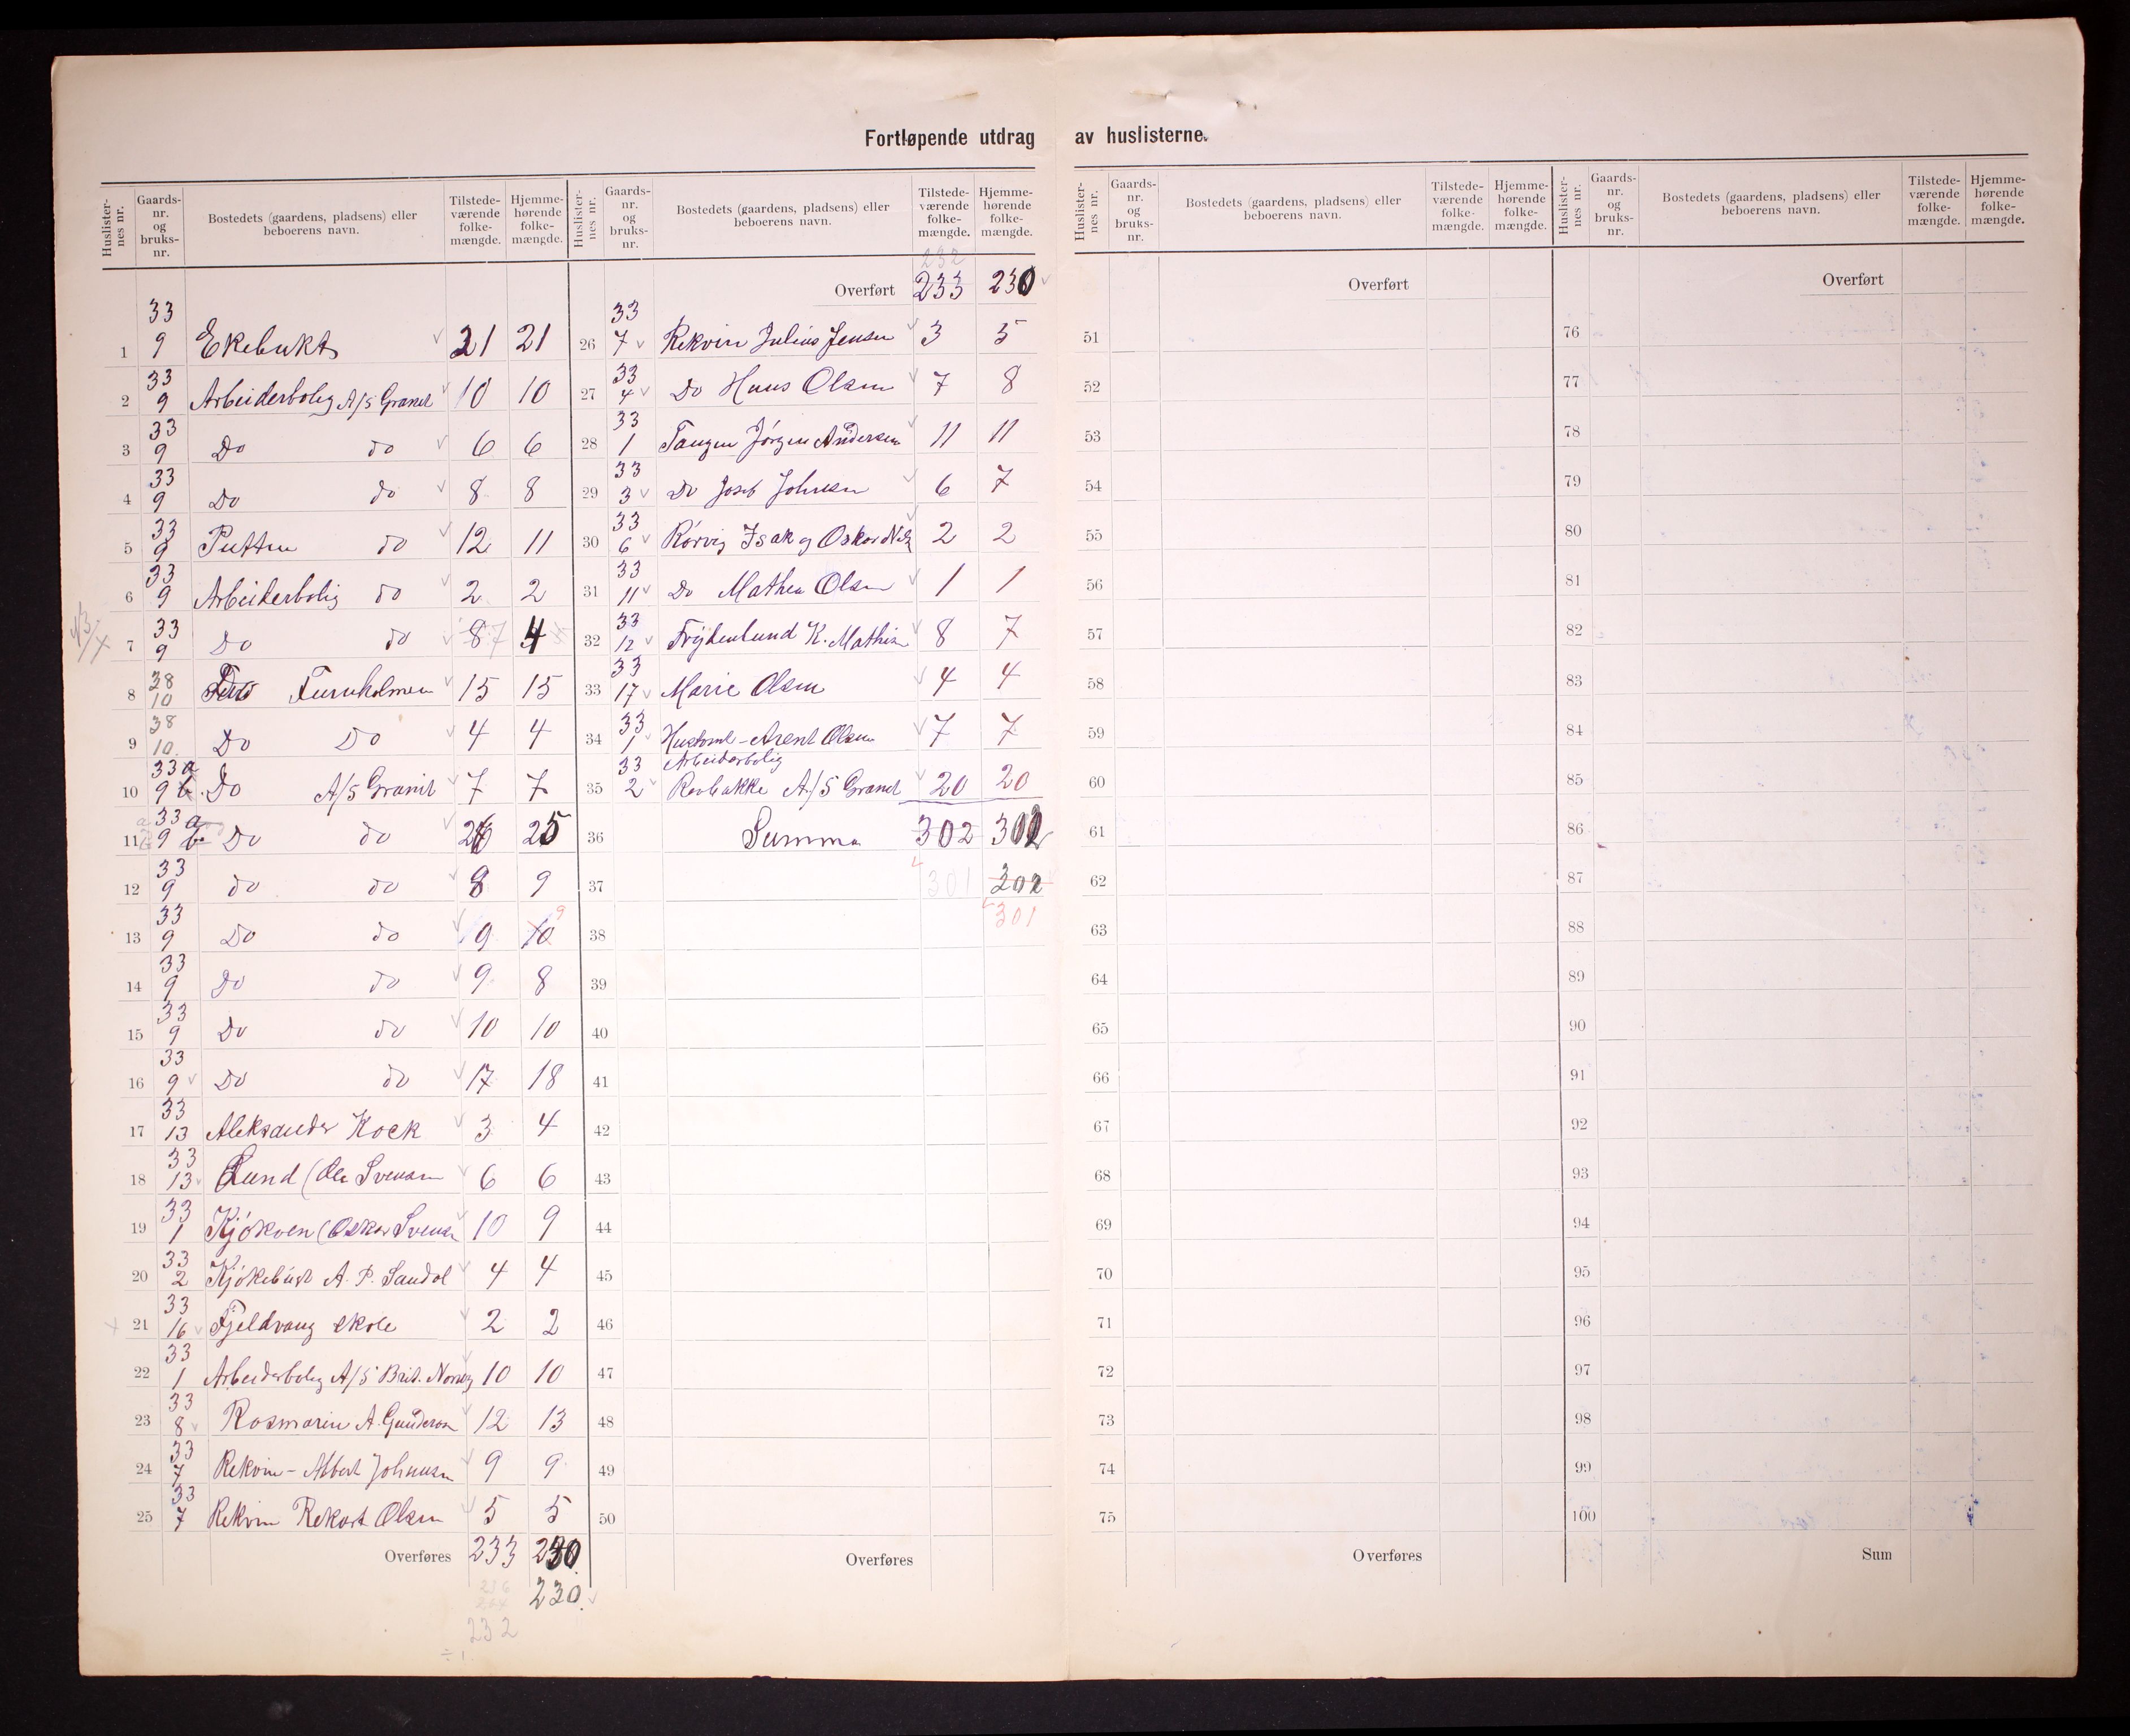 Fortløpende utdrag av huslisterne.
Huslisternes nr. Gaards-nr. og bruks-nr. Bostedets (gaardens, pladsens) eller beboerens navn. Tilstede-værende folke-mængde. Hjemme-hørende folke-mængde.
1 33 9 Ekebukt 21 21
2 33 9 Arbeiderbolig A/S Granit 10 10
3 33 9 Do do 6 6
4 33 9 Do do 8 8
5 33 9 Putten do 12 11
6 33 9 Arbeiderbolig do 2 2
7 33 9 Do do 8 7 4
8 38 10 Furuholmen 15 15
9 38 10 Do Do 4 4
10 33 a 9 b. Do A/S Granit 7 7
11 33 a 9 b. Do do 26 25
12 33 9 do do 8 9
13 33 9 Do do 9 10 9
14 33 9 Do do 9 8
15 33 9 Do do 10 10
16 33 9 Do do 17 18
17 33 13 Aleksander Kock 3 4
18 33 13 Lund (Ole Svensen 6 6
19 33 1 Kjøkøen (Oskar Svensen 10 9
20 33 2 Kjøkebukt A. P. 4 4
21 33 16 Fjeldvang skole 2 2
22 33 1 Arbeiderbolig A/S Brit. Norveg 10 10
23 33 8 Rosmarin A. Gundersen 12 13
24 33 7 Rekvin - Albert Johansen 9 9
25 33 7 Rekvin Rekart Olsen 5 5
Overføres 233 230
230
232
÷ 1
Huslisternes nr. Gaards-nr. og bruks-nr. Bostedets (gaardens, pladsens) eller beboerens navn. Tilstede-værende folke-mængde. Hjemme-hørende folke-mængde.
232
Overført 233 230
26 33 7 Rekvin Julius Jensen 3 5
27 33 4 Do Hans Olsen 7 8
28 33 1 Tangen Jørgen Andersen 11 11
29 33 3 Do Josef Johnsen 6 7
30 33 6 Rørvig Isak og Oskar 2 2
31 33 11 Do Mathea Olsen 1 1
32 33 12 Frydenlund K. Mathis 8 7
33 33 17 Marie Olsen 4 4
34 33 1 Arent Olsen 7 7
35 33 2 Arbeiderbolig Revbakke A/S Granit 20 20
36 Summa 302 302
37 301 302
301
38
39
40
41
42
43
44
45
46
47
48
49
50
Overføres
Huslisternes nr. Gaards-nr. og bruks-nr. Bostedets (gaardens, pladsens) eller beboerens navn. Tilstede-værende folke-mængde. Hjemme-hørende folke-mængde.
Overført
51
52
53
54
55
56
57
58
59
60
61
62
63
64
65
66
67
68
69
70
71
72
73
74
75
Overføres
Huslisternes nr. Gaards-nr. og bruks-nr. Bostedets (gaardens, pladsens) eller beboerens navn. Tilstede-værende folke-mængde. Hjemme-hørende folke-mængde.
Overført
76
77
78
79
80
81
82
83
84
85
86
87
88
89
90
91
92
93
94
95
96
97
98
99
100
Sum